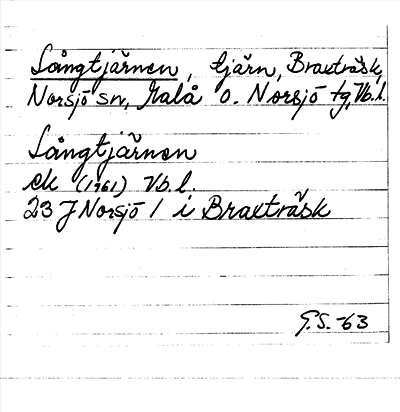 Långtjärnen, tjärn, Braxträsk,
Norsjö sn, Malå o. Norsjö tg, Vb.l.
Långtjärnen
ek (1961) Vb.l.
23 J Norsjö 1 i Braxträsk
G.S. -63